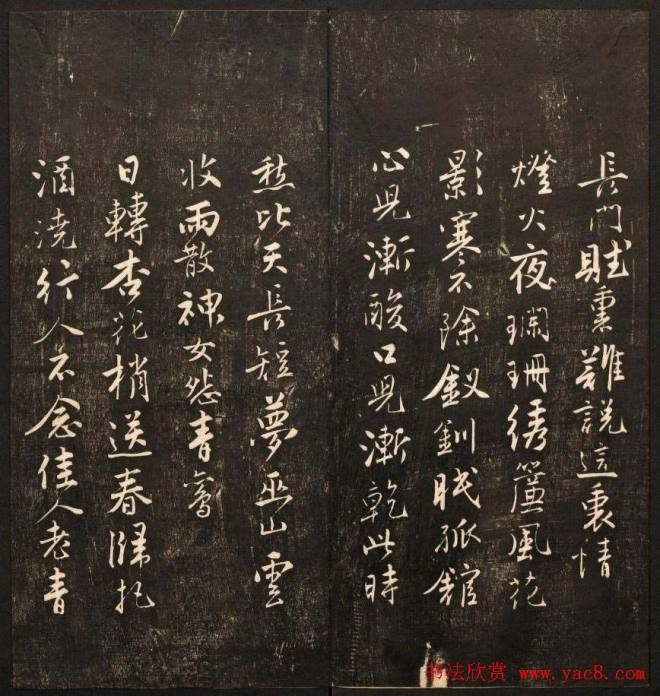 長門賦裏難説這裏情
燈火夜瓓珊綉簾風花
影寒不除釵釧眠孤館
心児漸酸口児漸乾此時
愁比天長短夢巫山雲
收雨散神女愁青鸞
日轉杏花梢送春歸把
酒澆行人不念佳人老青
书法欣赏 www.yac8.com